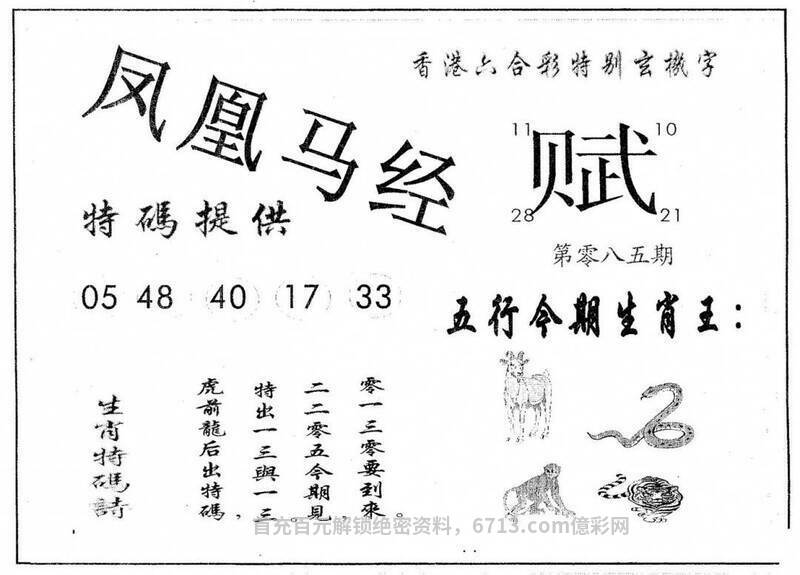 香港六合彩特别玄機字
凤凰马经
11 10
赋
28 21
特碼提供
第零八五期
05 48 40 17 33
五行今期生肖王：
零一三零要到來。
二二零五今期見，
特出一三與一三。
虎前龍后出特碼，
生肖特碼詩
首充百元解锁绝密资料，6713.com億彩网